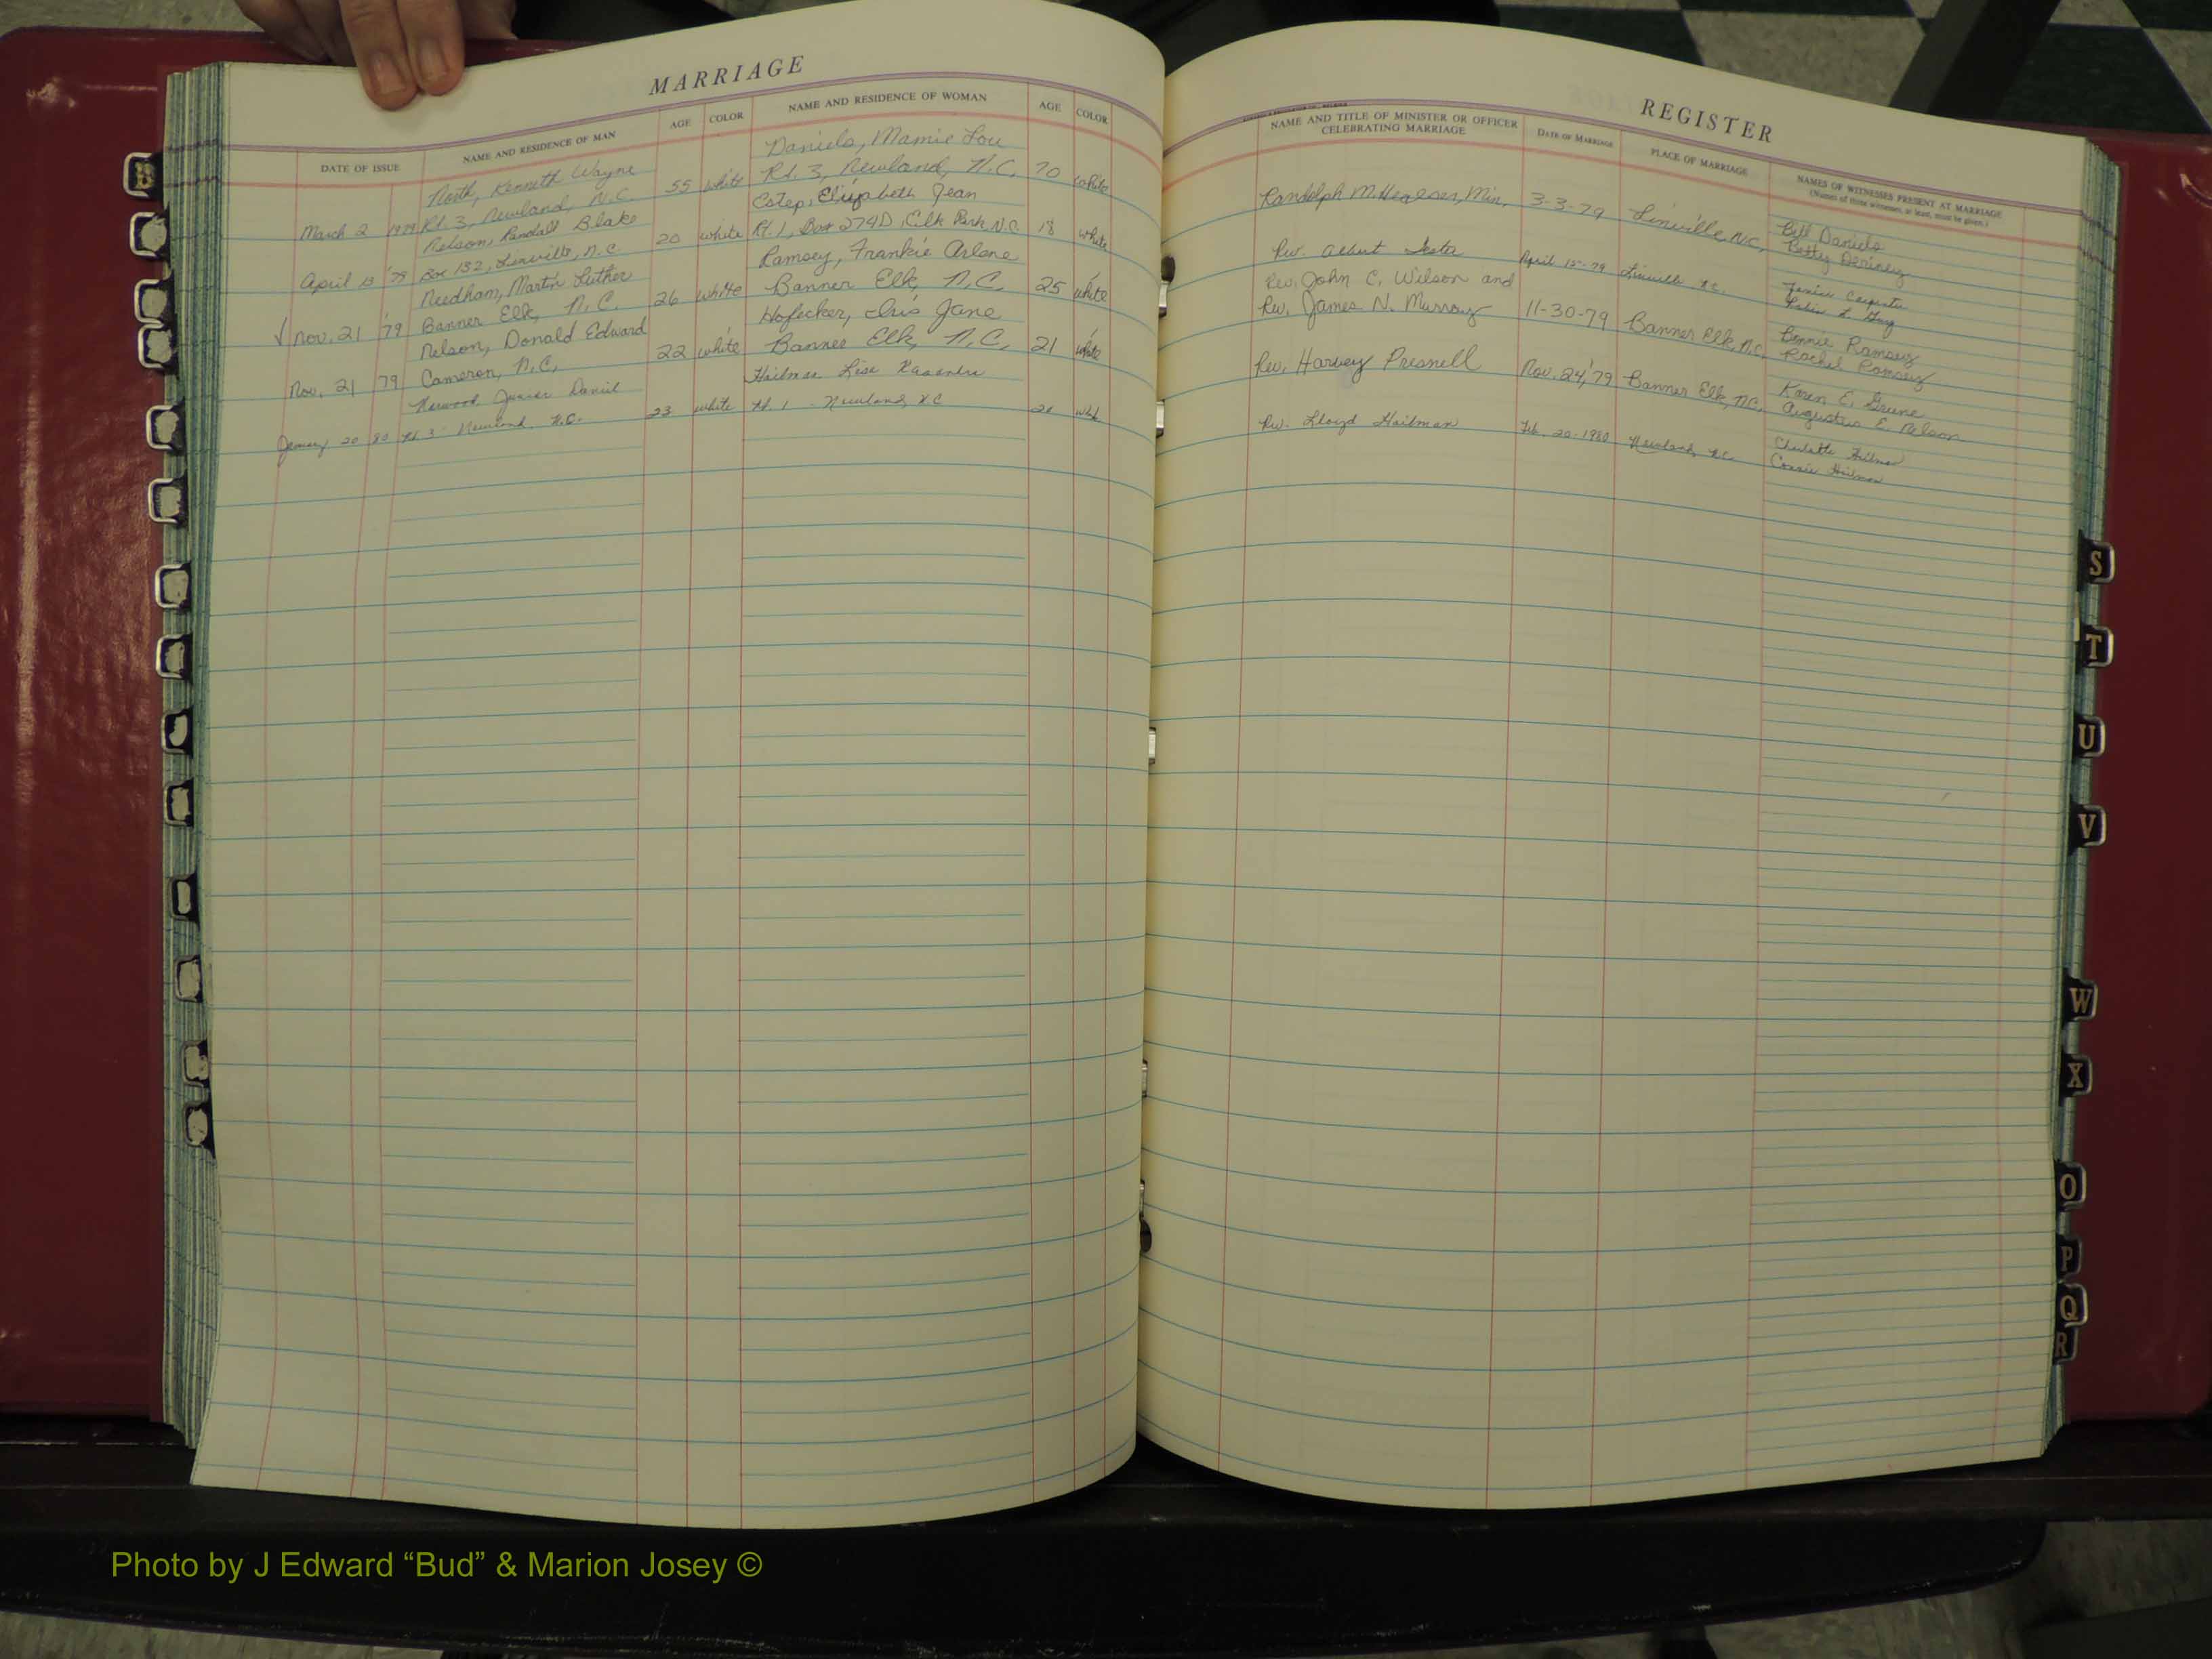 MARRIAGE
DATE OF ISSUE NAME AND RESIDENCE OF MAN AGE COLOR NAME AND RESIDENCE OF WOMAN AGE COLOR
North, Kenneth Wayne Daniels, Mamie Lou
March 2 1979 Rt. 3, Newland, N.C. 55 white Rt. 3, Newland, N.C. 70 white
Nelson, Randall Blake Estep, Elizabeth Jean
April 13 '79 Box 132, Linville, N.C. 20 white Rt. 1, Box 274D, Elk Park, N.C. 18 white
Needham, Martin Luther Ramsey, Frankie Arlene
√ Nov. 21 '79 Banner Elk, N.C. 26 white Banner Elk, N.C. 25 white
Nelson, Donald Edward Hofecker, Iris Jane
Nov. 21 79 Cameron, N.C. 22 white Banner Elk, N.C. 21 white
Junior Daniel Lisa
January 20 80 Rt. 3 Newland, N.C. 23 white Rt. 1 - Newland, N.C.
REGISTER
NAME AND TITLE OF MINISTER OR OFFICER CELEBRATING MARRIAGE DATE OF MARRIAGE PLACE OF MARRIAGE NAMES OF WITNESSES PRESENT AT MARRIAGE
(Names of three witnesses, at least, must be given.)
Randolph M. Min. 3-3-79 Linville, N.C. Bill Daniels
Betty
Rev. Albert April 15-79 Linville N.C. Janice
Rev. John C. Wilson and
Rev. James N. Murray 11-30-79 Banner Elk, N.C. Bonnie Ramsey
Rachel Ramsey
Rev. Harvey Presnell Nov. 24, '79 Banner Elk, N.C. Karen E. Greene
Augustus E. Nelson
Rev. Lloyd Hailman Feb. 20-1980 Newland, N.C. Hailman
Connie Hailman
B
S
T
U
V
W
X
O
P
Q
R
Photo by J Edward “Bud” & Marion Josey ©